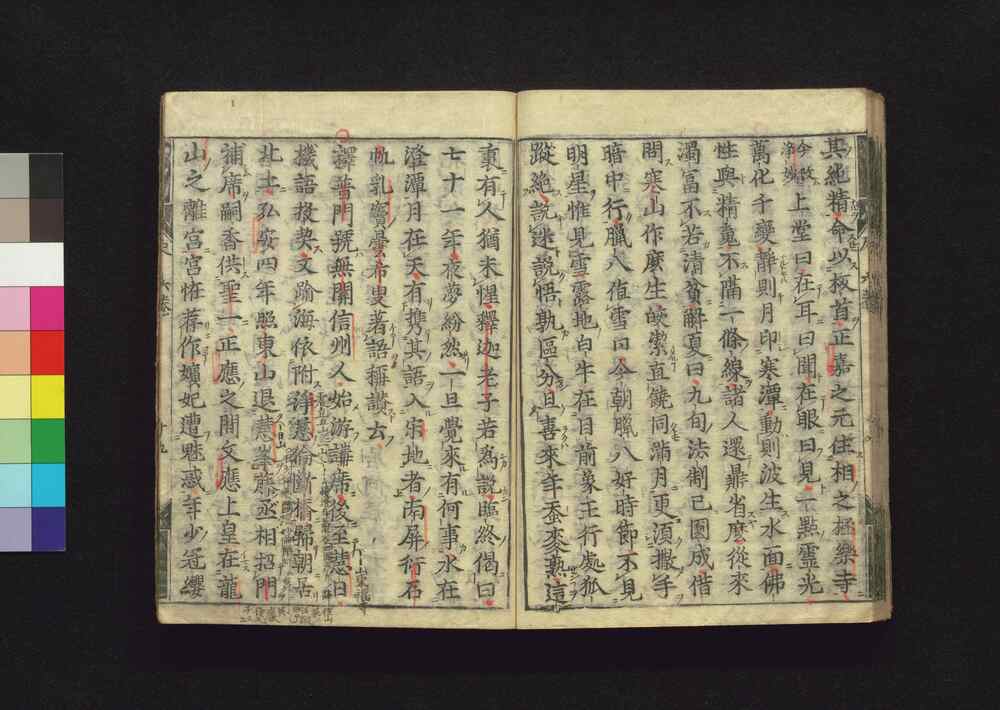 其純精命以板首正嘉之元住相之極樂寺
今改淨妙上堂曰在耳曰聞在眼曰見一點靈光
萬化千變靜則月印寒潭動則波生水面佛
性與精魂不隔一條線諸人還鼎省麼從來
濁富不若清貧解夏曰九旬法制已圓成借
問寒山作麼生皎潔直饒同滿月更須撒手
暗中行臘八值雪曰今朝臘八好時節不見
明星惟見雪露地白牛在目前象王行處狐
蹤絶說迷說悟孰區分且喜來年蚕麥熟這
裏有人猶未惺釋迦老子若為說臨終偈曰
七十一年夜夢紛然一旦覺來有何事水在
澄潭月在天有携其語入宋地者南屏衍石
帆乳竇曇希叟著語稱讚去
釋普門號無關信州人始游講席後至慧日
機語投契文踰海依附淨慈倫斷橋歸朝居
北土弘安四年照東山退慧峯藤丞相招門
補席嗣香供聖一正應之間文應上皇在龍
山之離宮宮恠荐作嬪妃遭魅惑年少冠纓